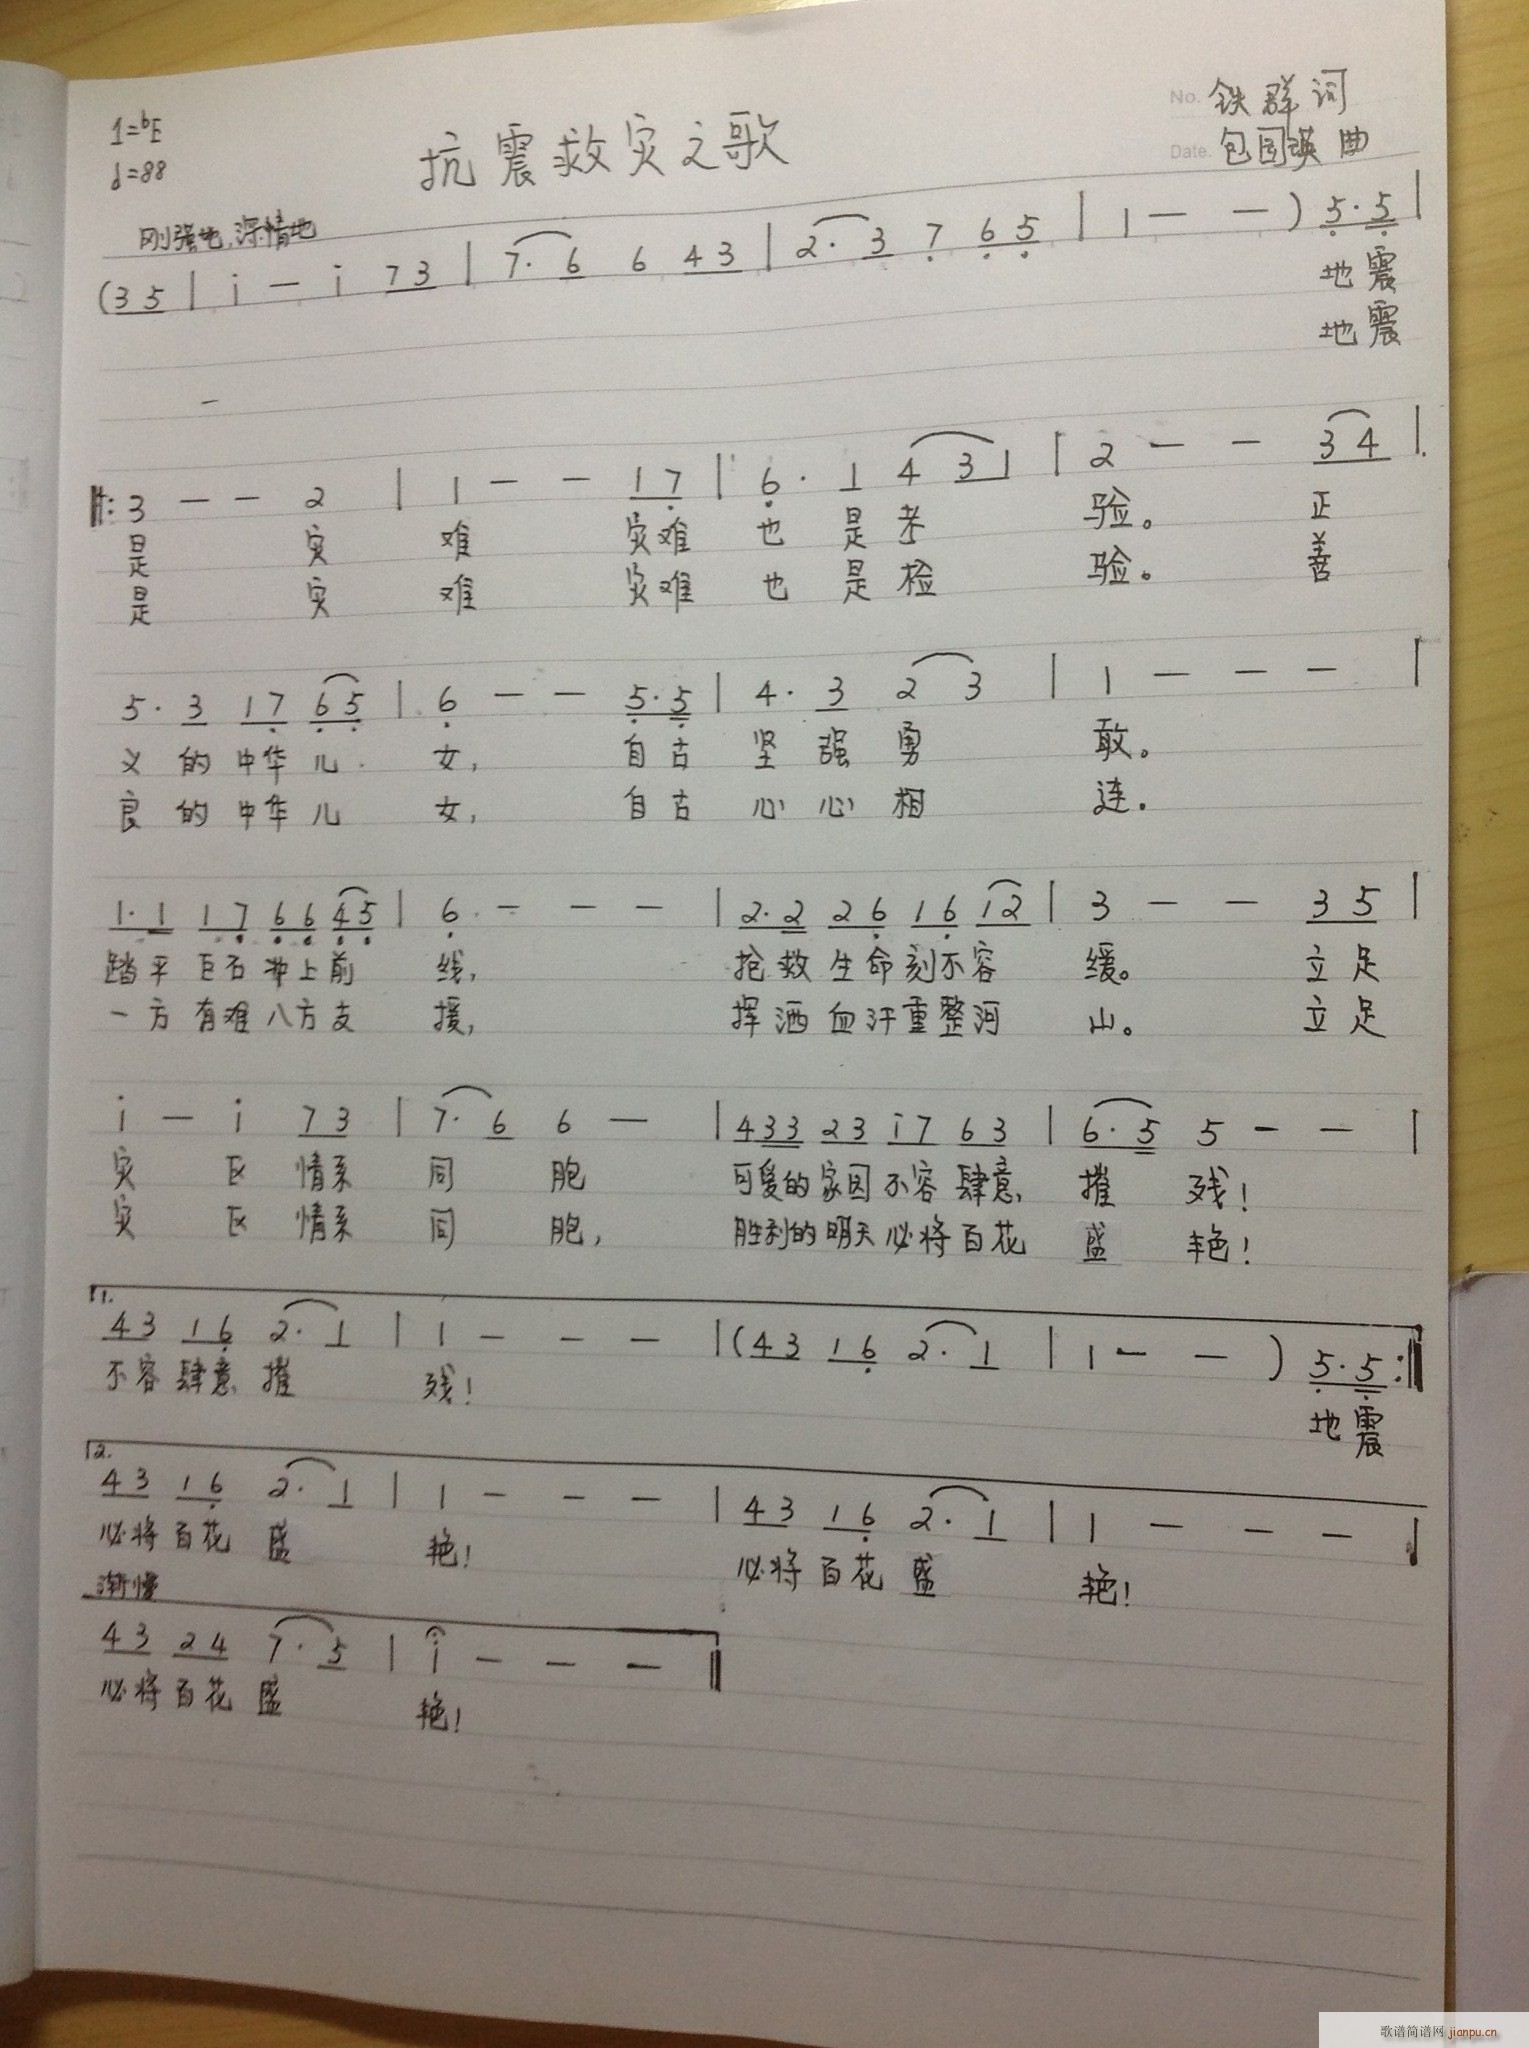 No. 铁群 词
1=bE
抗震救灾之歌
Date. 包国瑛 曲
♩=88
刚强地,深情地
(3 5 | i — i 7 3 | 7· 6 6 4 3 | 2· 3 7 6 5 | 1 — — ) 5·5 |
地震
地震
‖: 3 — — 2 | 1 — — 1 7 | 6· 1 4 3 1 | 2 — — 3 4 |
是 灾 难 灾难 也 是 考 验。 正
是 灾 难 灾难 也 是 检 验。 善
5· 3 1 7 6 5 | 6 — — 5·5 | 4· 3 2 3 | 1 — — — |
义 的 中华 儿 女, 自古 坚 强 勇 敢。
良 的 中华 儿 女, 自古 心 心 相 连.
1·1 1 7 6 6 4 5 | 6 — — — | 2·2 2 6 1 6 1 2 | 3 — — 3 5 |
踏平 巨石 冲上前 线, 抢救 生命 刻不容 缓。 立足
一方 有难 八方支 援, 挥洒 血汗 重整河 山。 立足
i — i 7 3 | 7· 6 6 — | 4 3 3 2 3 i 7 6 3 | 6·5 5 — — |
灾 区 情系 同 胞 可爱的 家园 不容 肆意 摧 残!
灾 区 情系 同 胞, 胜利的 明天 必将 百花 盛 艳!
1.
4 3 1 6 2· 1 | 1 — — — | (4 3 1 6 2· 1 | 1 — — ) 5·5 :‖
不容 肆意 摧 残!
地震
2.
4 3 1 6 2· 1 | 1 — — — | 4 3 1 6 2· 1 | 1 — — — |
必将 百花 盛 艳! 必将 百花 盛 艳!
渐慢
4 3 2 4 7· 5 | i — — — ‖
必将 百花 盛 艳!
歌谱简谱网 jianpu.cn